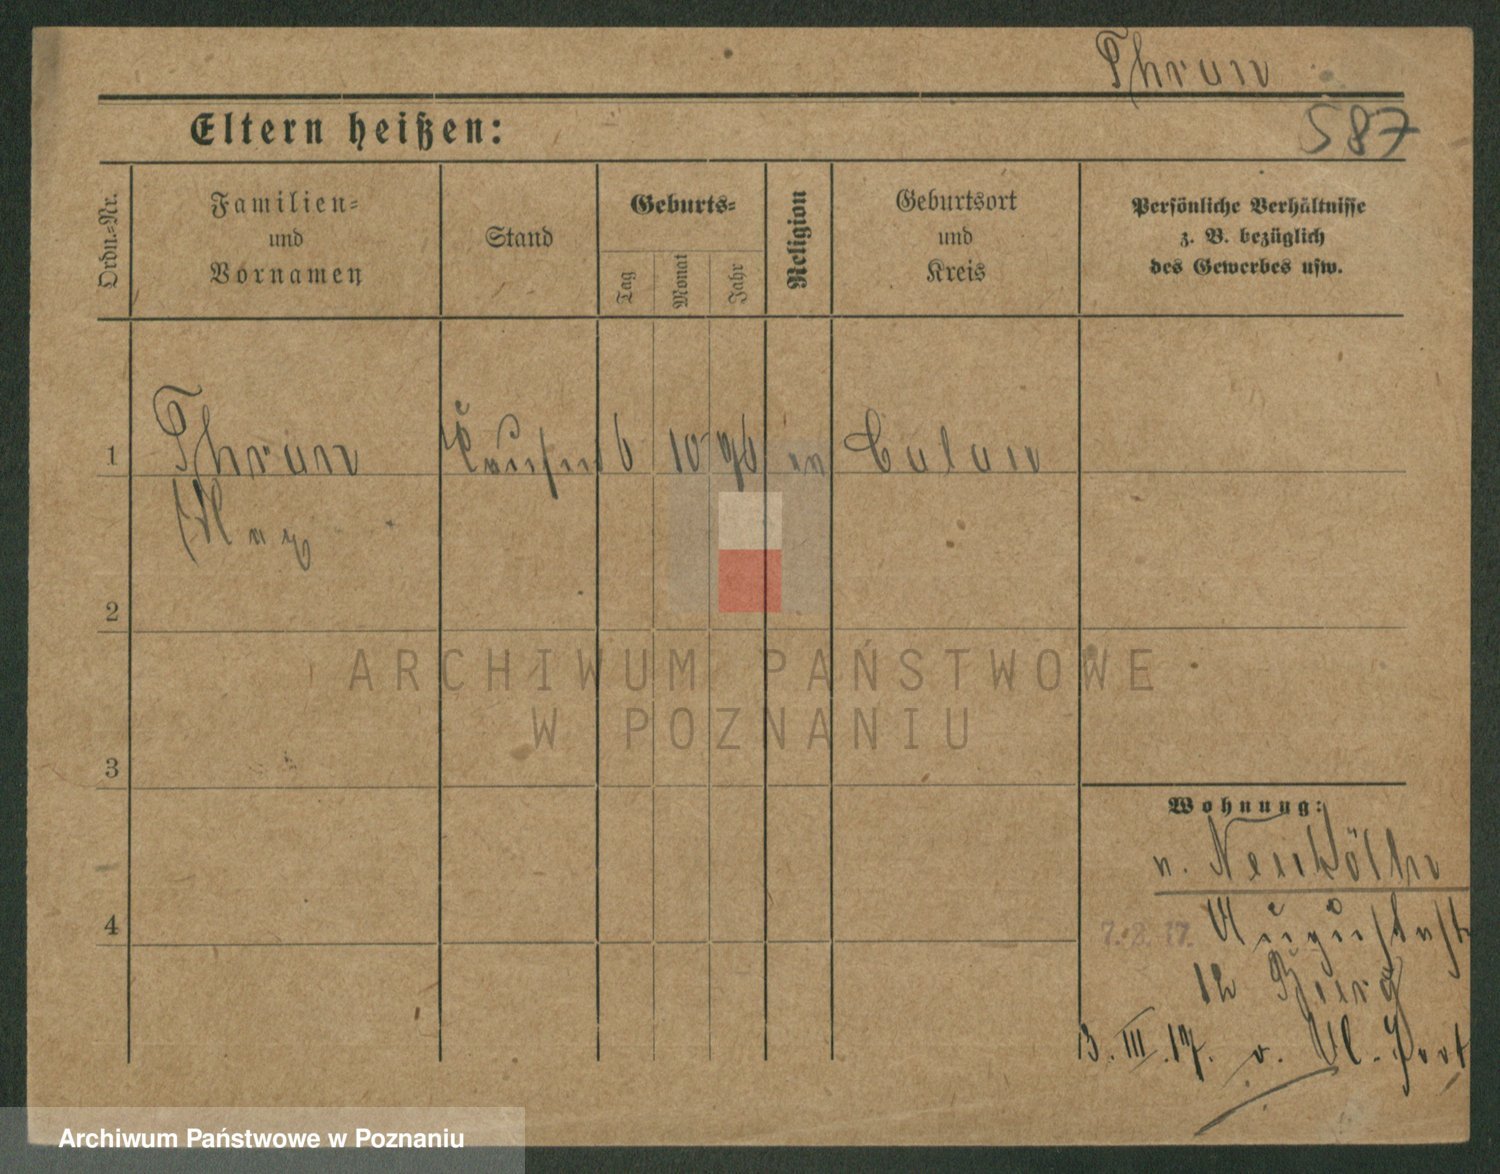 Thran
587
Eltern heißen:
Ordn.-Nr.
Familien-
und
Vornamen
Stand
Geburts-
Tag
Monat
Jahr
Religion
Geburtsort
und
Kreis
Persönliche Verhältnisse
z. B. bezüglich
des Gewerbes usw.
1 Thran 6 10 96 Calau
Max
2
ARCHIWUM PAŃSTWOWE
W POZNANIU
3
Wohnung:
n. Neukölln
4
7. 2. 17. Auguststr
12
13. III. 17. v.
Archiwum Państwowe w Poznaniu